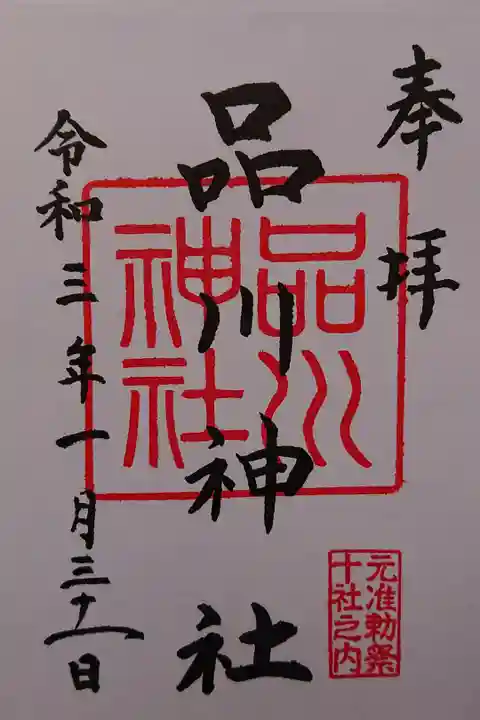 奉拝
品川神社
品川神社
元准勅祭
十社之内
令和三年一月三十一日